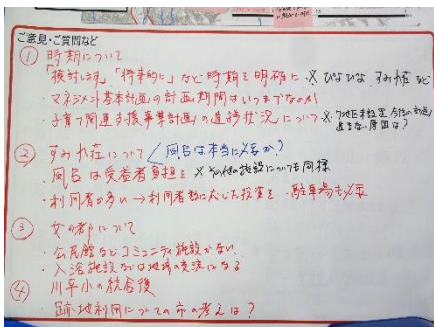 ご意見・ご質問など
① 時期について
「検討します」「将来的に」など時期を明確に ※ ひなひな、すみれ荘 など
・マネジメント基本計画の計画期間はいつまでなのか
・子育て関連支援事業計画の進捗状況について ※ 7地区未設置 今後の計画
進まない原因は？
② すみれ荘について 風呂は本当に必要か？
・風呂は受益者負担を ※その他の施設についても同様
・利用者が多い→利用者数に応じた投資を ・駐車場も必要
③ 女の都について
・公民館などコミュニティ施設がない
・入浴施設などは地域の交流になる
④ 川平小の統合後
・跡地利用についての市の考えは？